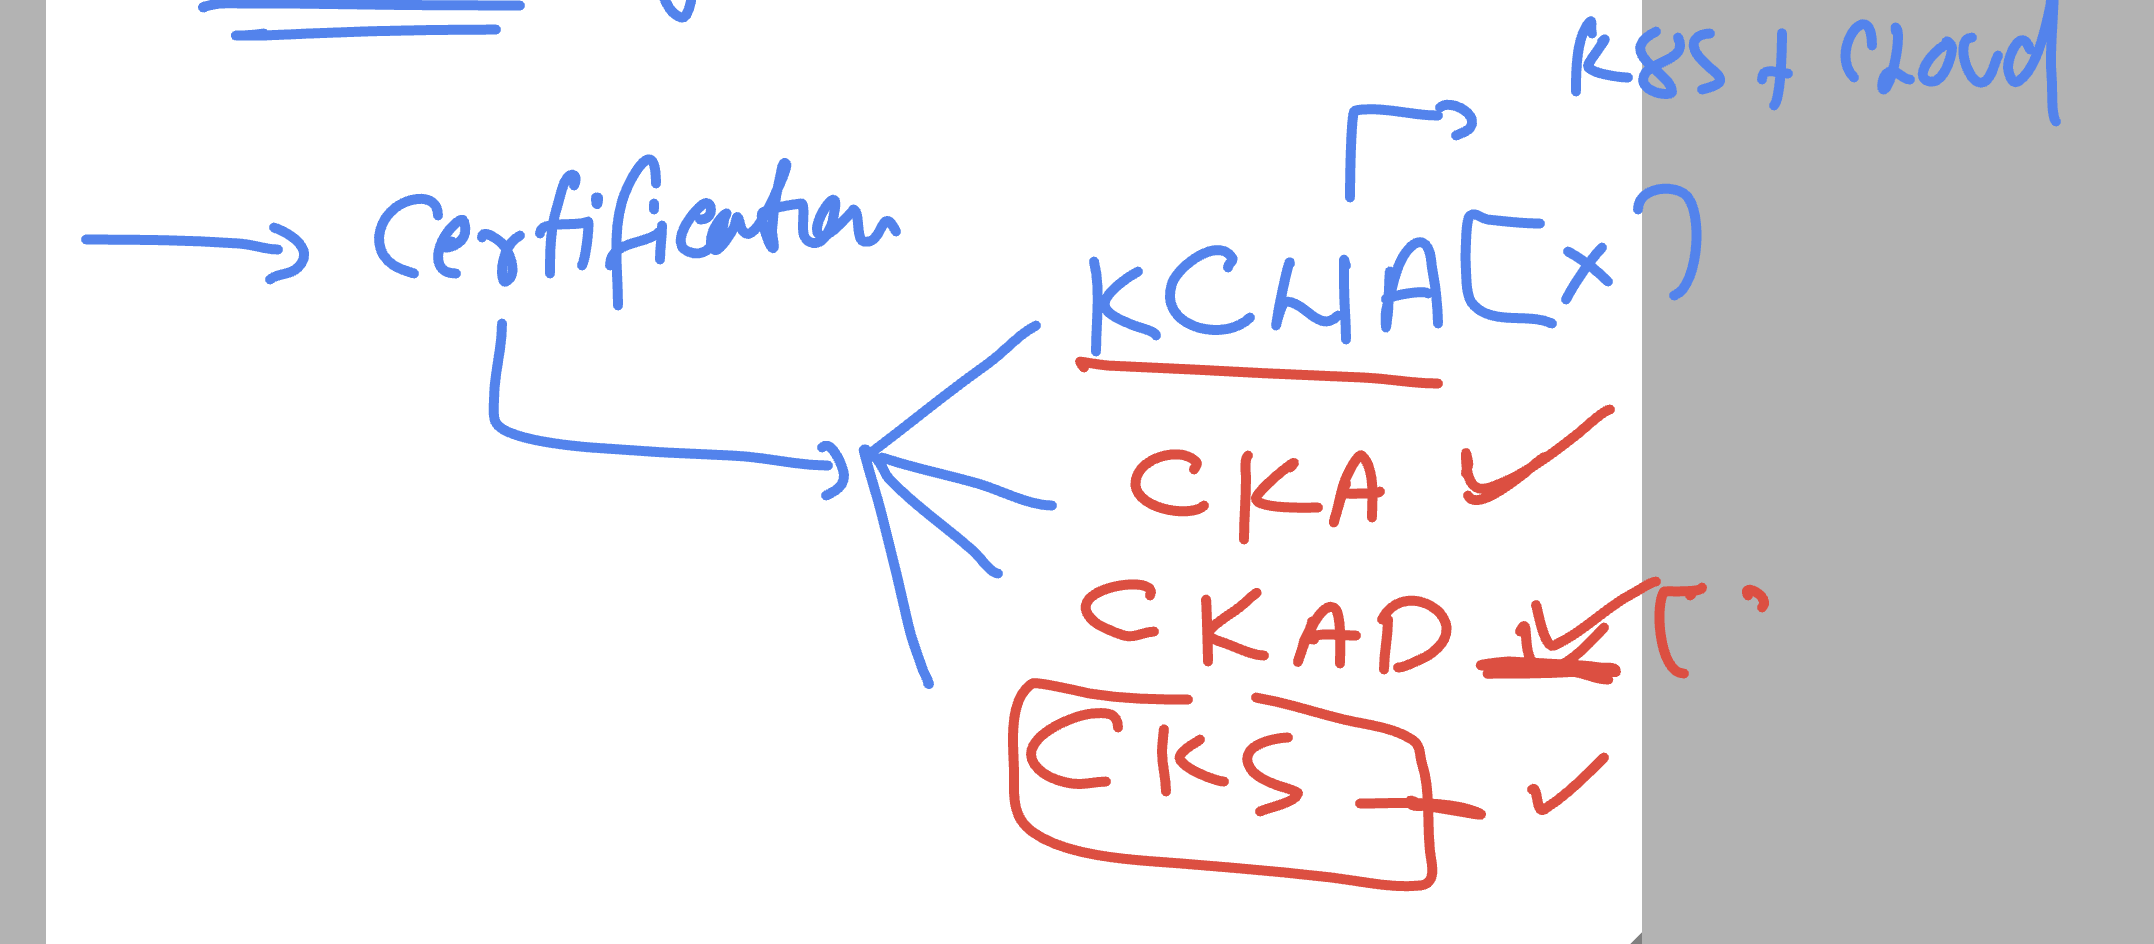 K8S + Cloud
→ Certification
KCNA [x]
CKA ✓
CKAD ✓
CKS — ✓